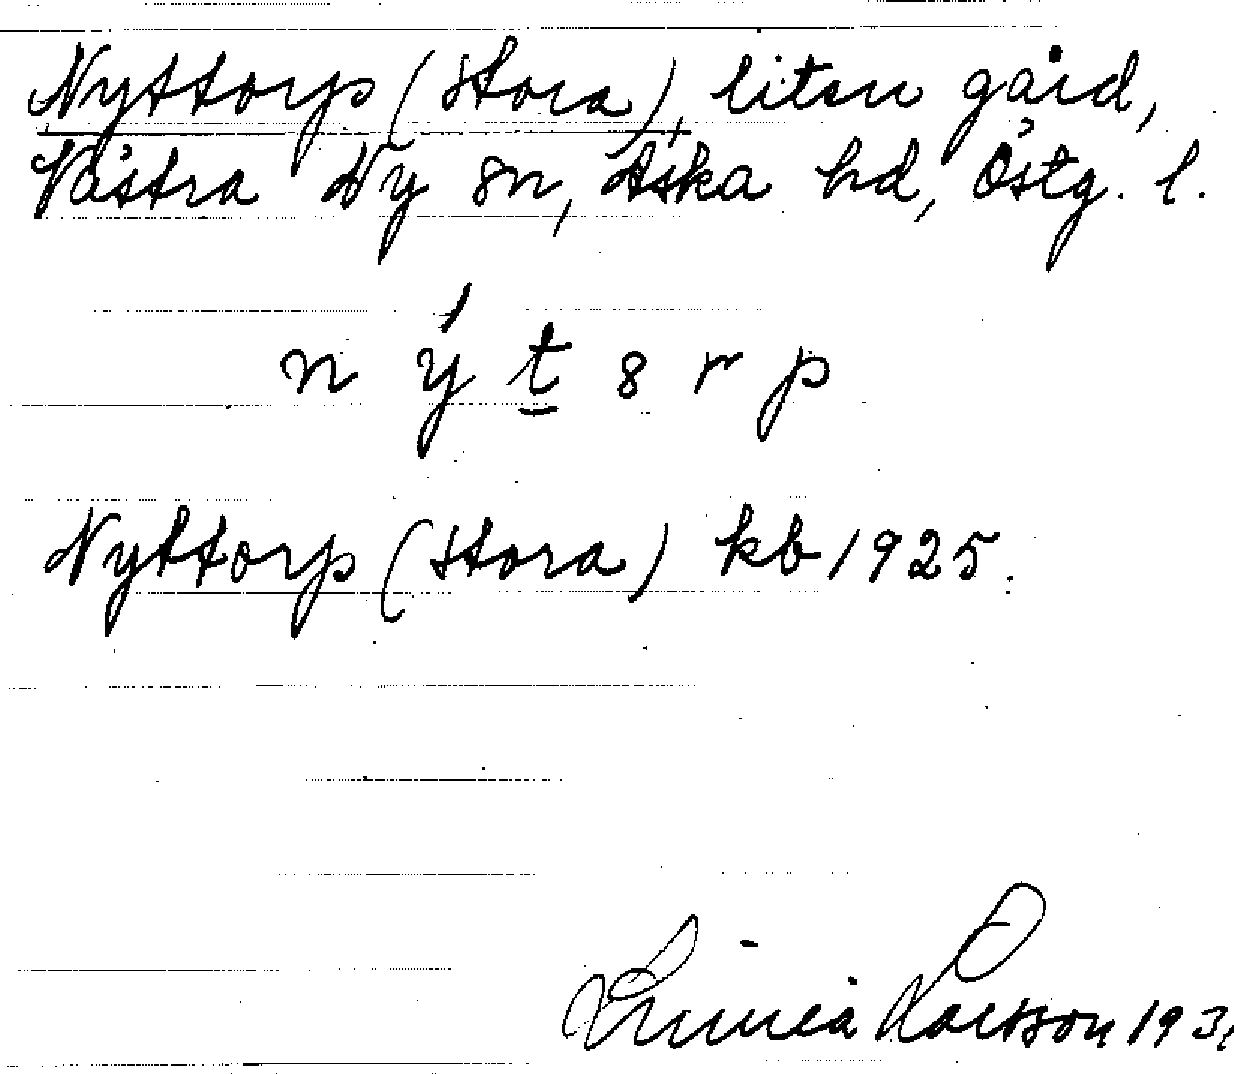 Nyttorp (Stora), liten gård,
Västra Ny sn, Aska hd, Östg. l.
n ý t s r p
Nyttorp (Stora) kb 1925.
Linnéa Larsson